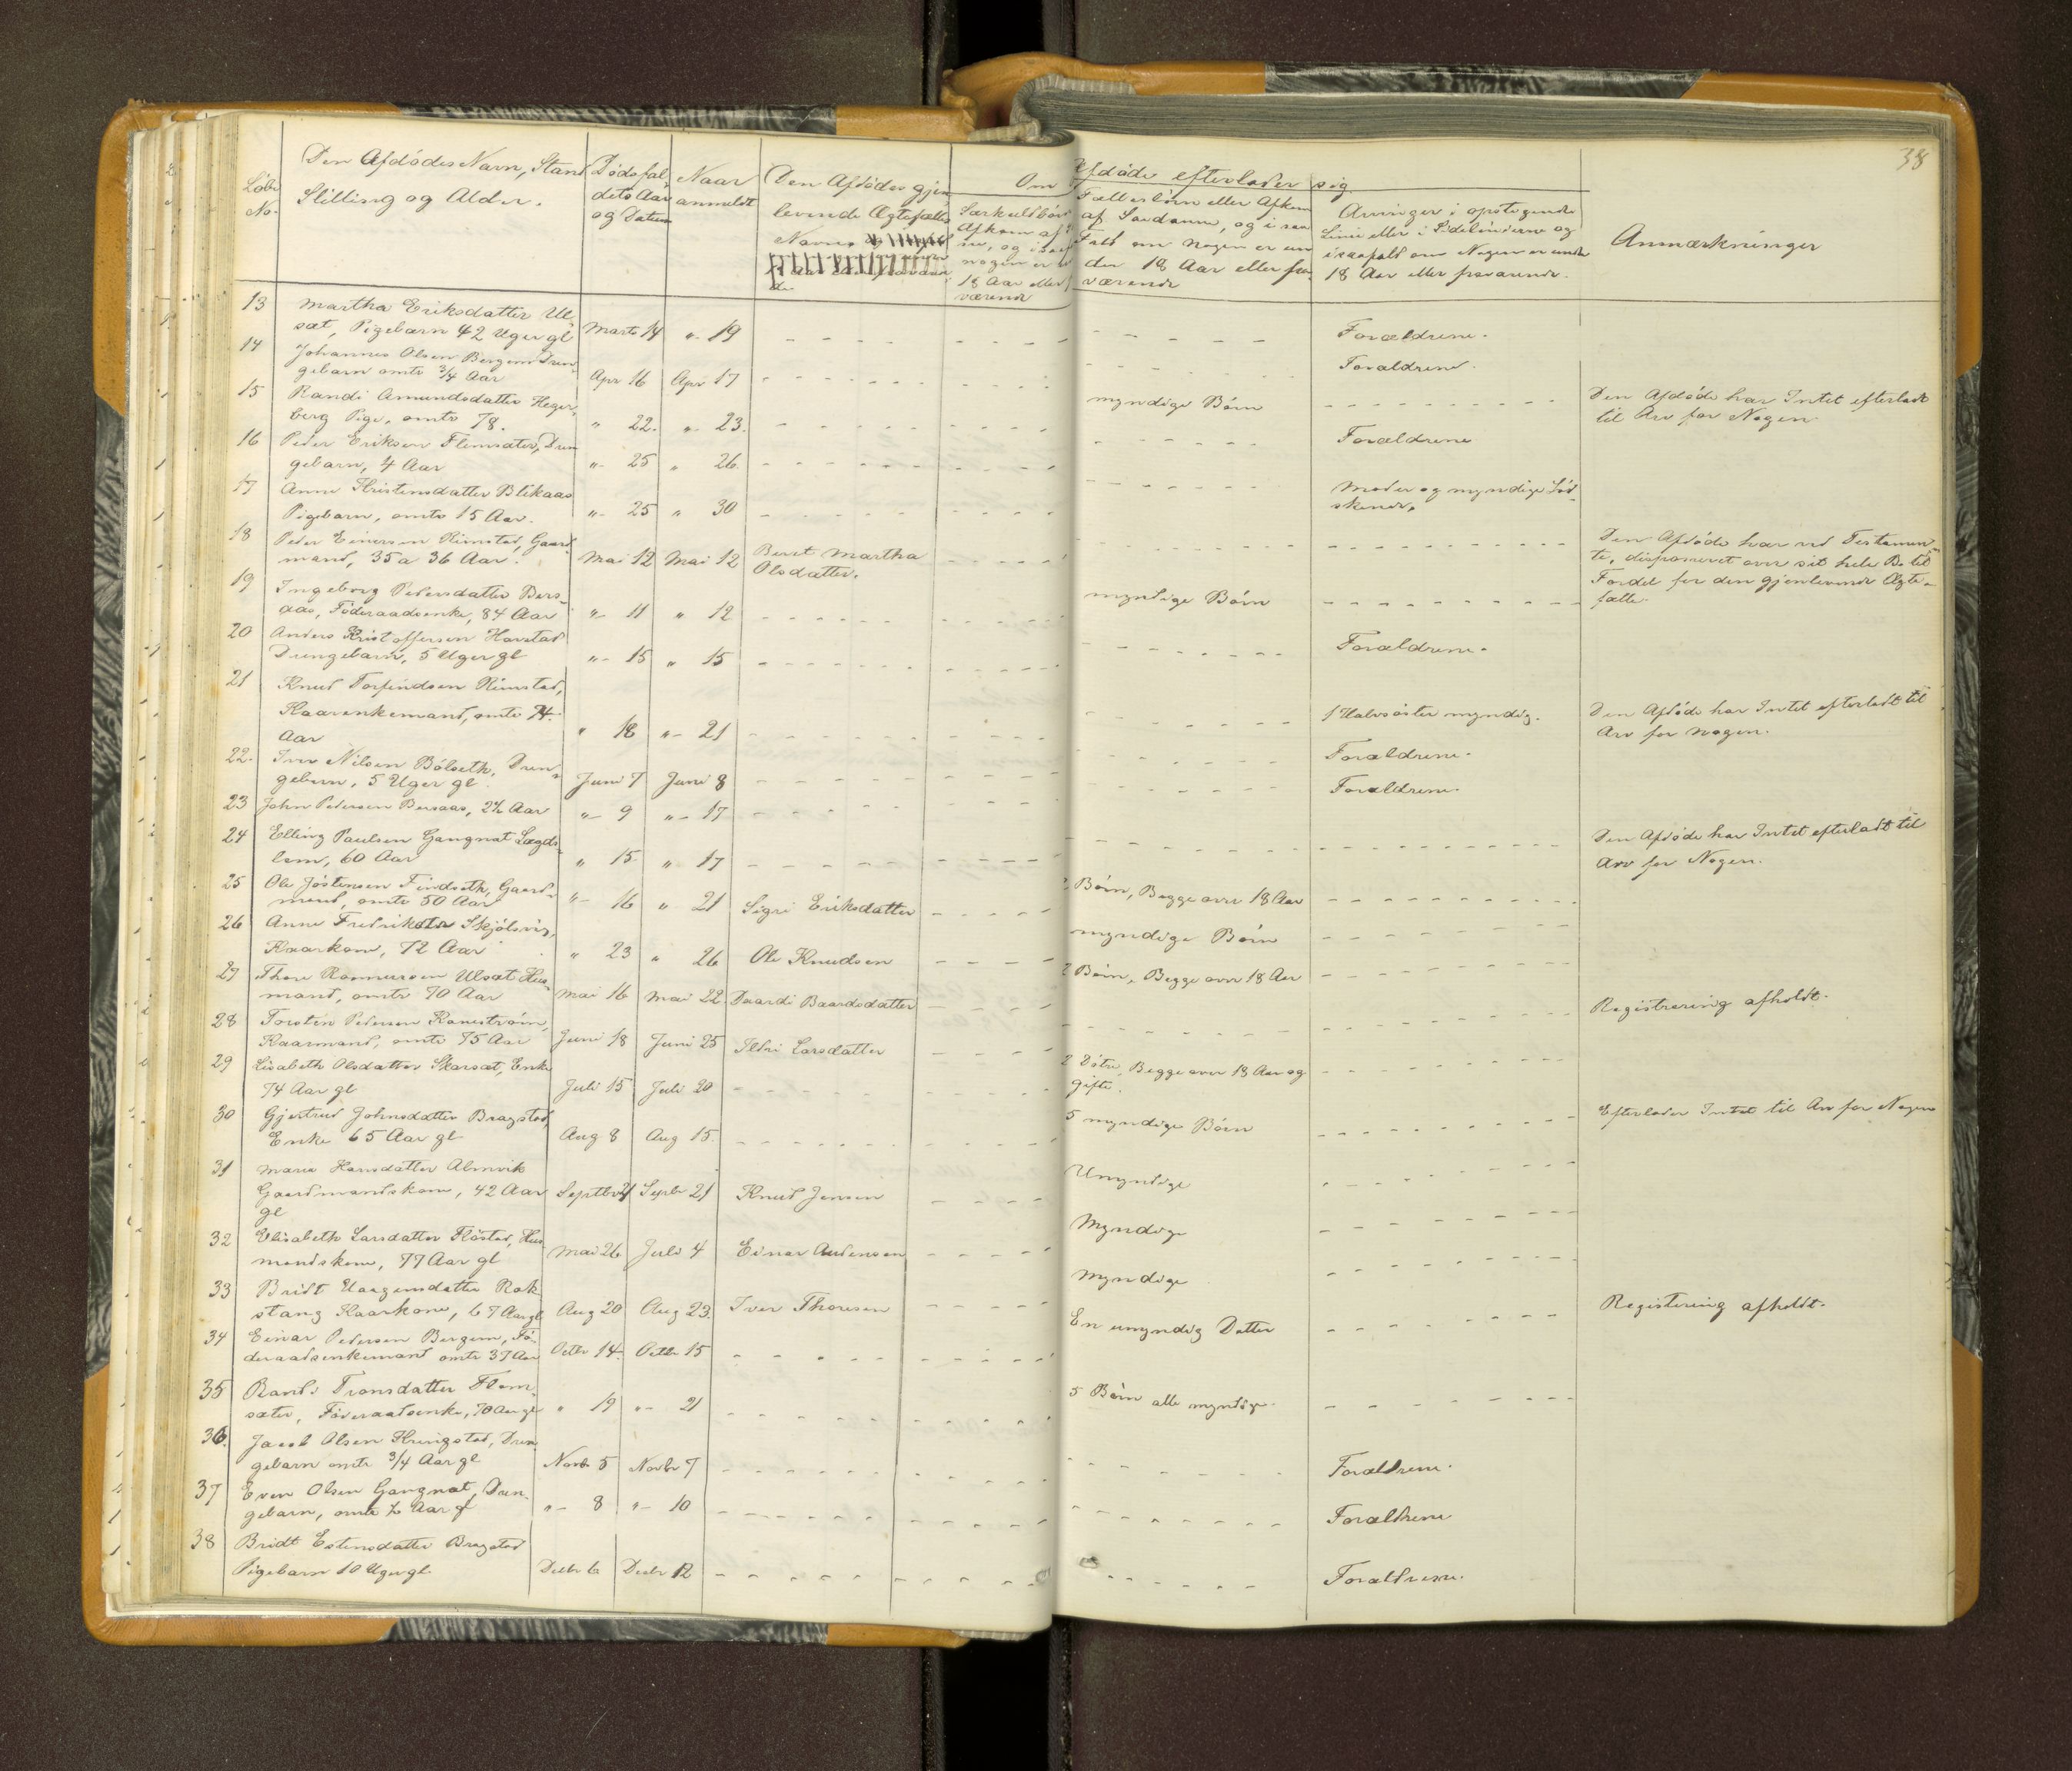 38
Løbe
No.
Den Afdødes Navn, Stand
Stilling og Alder.
Dødsfal-
dets Aar
og Datum
Naar
anmeldt
Den Afdødes gjen-
levende Ægtefælles
Navn
Om
Afdøde efterlader sig
Særkuldbørn
18 Aar eller
værende
Fællesbørn eller Afkom
af Saadanne, og i saa
Fald om Nogen er un
der 18 Aar eller fra-
værende
Arvinger i opstigende
Linie eller i Sidelinierne og
i saafald om Nogen er under
18 Aar eller fraværende.
Anmærkninger
13 Martha Eriksdatter Ul-
sæt, Pigebarn 42 Uger gl Marts 14 " 19 Forældrene.
14 Johannes Olsen Bergem Dren-
gebarn omtr 3/4 Aar Apr 16 Apr 17 Forældrene.
15 Randi Amundsdatter Heger-
berg Pige, omtr 78. " 22. " 23. myndige Børn Den Afdøde har Intet efterladt
til Arv for Nogen
16 Peder Eriksen Flemsæter, Dren
gebarn, 4 Aar " 25 " 26. Forældrene
17 Anne Kristensdatter Blikaas
Pigebarn, omtr 15 Aar. " 25 " 30 Moder og myndige Sød-
skende.
18 Peder Einersen Rimstad, Gaard-
mand, 35 a 36 Aar. Mai 12 Mai 12 Beret Martha
Olsdatter. Den Afdøde har ved Testamen-
te, disponeret over sit hele Bo til
Fordel for den gjenlevende Ægte-
fælle.
19 Ingeborg Pedersdatter Bers-
aas, Føderaadsenke, 84 Aar " 11 " 12 myndige Børn
20 Anders Kristoffersen Harstad
Drengebarn, 5 Uger gl " 15 " 15 Forældrene.
21 Knud Torfindsen Rimstad,
Kaarenkemand, omtr 74.
Aar " 18 " 21 1 Halvsøster myndig. Den Afdøde har Intet efterladt til
Arv for Nogen.
22. Iver Nilsen Bølseth, Dren-
gebarn, 5 Uger gl. Juni 7 Juni 8 Forældrene.
23 John Pedersen Bersaas, 2½ Aar " 9 " 17 Forældrene.
24 Elling Paulsen Gangnat Lægds-
lem, 60 Aar " 15. " 17 Den Afdøde har Intet efterladt til
Arv for Nogen.
25 Ole Jøstensen Findseth, Gaard-
mand, omtr 50 Aar " 16 " 21 Sigri Eriksdatter 2 Børn, Begge over 18 Aar
26 Anne Fredriksdtr Skjølsvig,
Kaarkone, 72 Aar " 23 " 26 Ole Knudsen myndige Børn
27 Thore Rasmussen Ulsæt Hus-
mand, omtr 70 Aar Mai 16 Mai 22 Baardsdatter 2 Børn, Begge over 18 Aar
28 Torsten Pedersen
Kaarmand, omtr 75 Aar Juni 18 Juni 25 Ildri Larsdatter Registrering afholdt.
29 Lisabeth Olsdatter Skarsæt, Enke
74 Aar gl Juli 15 Juli 20 2 Døtre, Begge over 18 Aar og
gifte.
30 Gjertrud Johnsdatter Bragstad,
Enke 65 Aar gl Aug 8 Aug 15. 5 myndige Børn Efterlader Intet til Arv for Nogen
31 Maria Hansdatter Almvik
Gaardmandskone, 42 Aar
gl Septbr 21 Septr 21 Knud Jensen Umyndige
32 Elisabeth Larsdatter Fløstad, Hus
mandskone, 77 Aar gl Mai 26 Juli 4 Einar Andersen Myndige
33 Bridt Aagensdatter Rok
stang Kaarkone, 67 Aar gl Aug 20 Aug 23. Iver Thoresen Myndige
34 Einar Pedersen Bergem, Fø-
deraadsenkemand omtr 37 Aar Octbr 14. Octbr 15 En umyndig Datter Registrering afholdt.
35 Randi Tronsdatter Flem-
sæter, Føderaadsenke, 70 Aar gl " 19 " 21 5 Børn alle myndige.
36. Jacob Olsen Kringstad, Dren-
gebarn omtr 3/4 Aar gl Novbr 5 Novbr 7 Forældrene.
37 Even Olsen Gangnat, Dren-
gebarn, omtr ½ Aar gl " 8 " 10 Forældrene
38 Bridt Estensdatter Bragstad
Pigebarn 10 Uger gl. Decbr 6 Decbr 12 Forældrene.